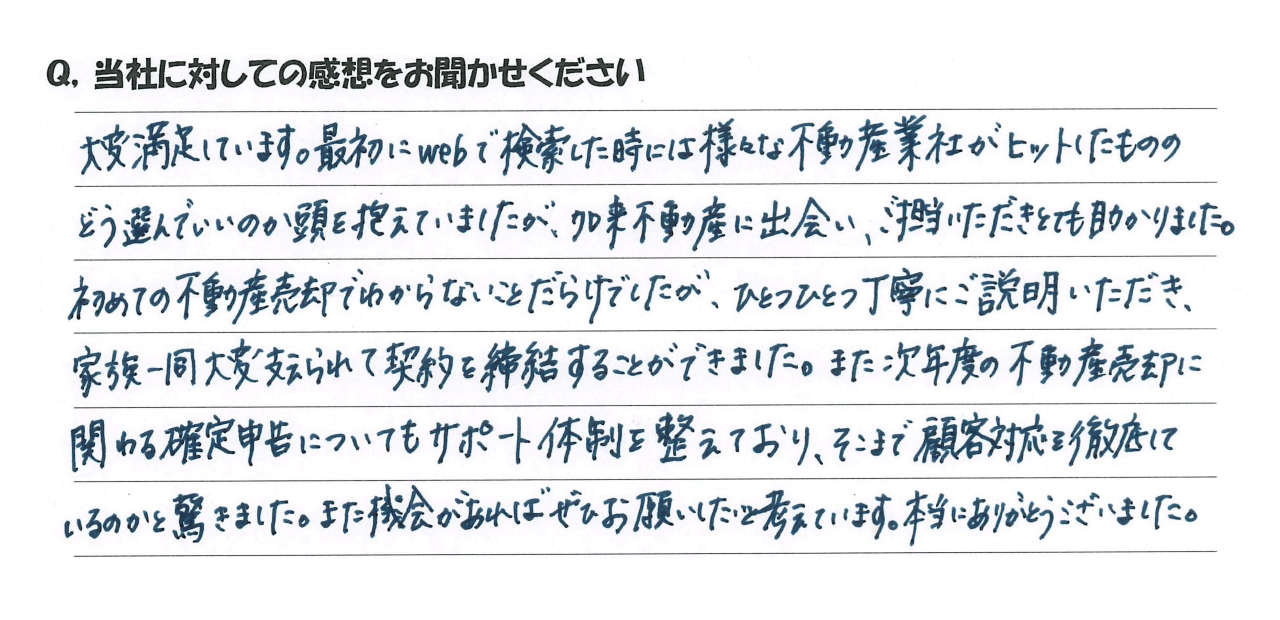 Q, 当社に対しての感想をお聞かせください
大変満足しています。最初にwebで検索した時には様々な不動産業社がヒットしたものの
どう選んでいいのか頭を抱えていましたが、加来不動産に出会い、ご担当いただきとても助かりました。
初めての不動産売却でわからないことだらけでしたが、ひとつひとつ丁寧にご説明いただき、
家族一同大変支えられて契約を締結することができました。また次年度の不動産売却に
関わる確定申告についてもサポート体制を整えており、そこまで顧客対応を徹底して
いるのかと驚きました。また機会があればぜひお願いしたいと考えています。本当にありがとうございました。